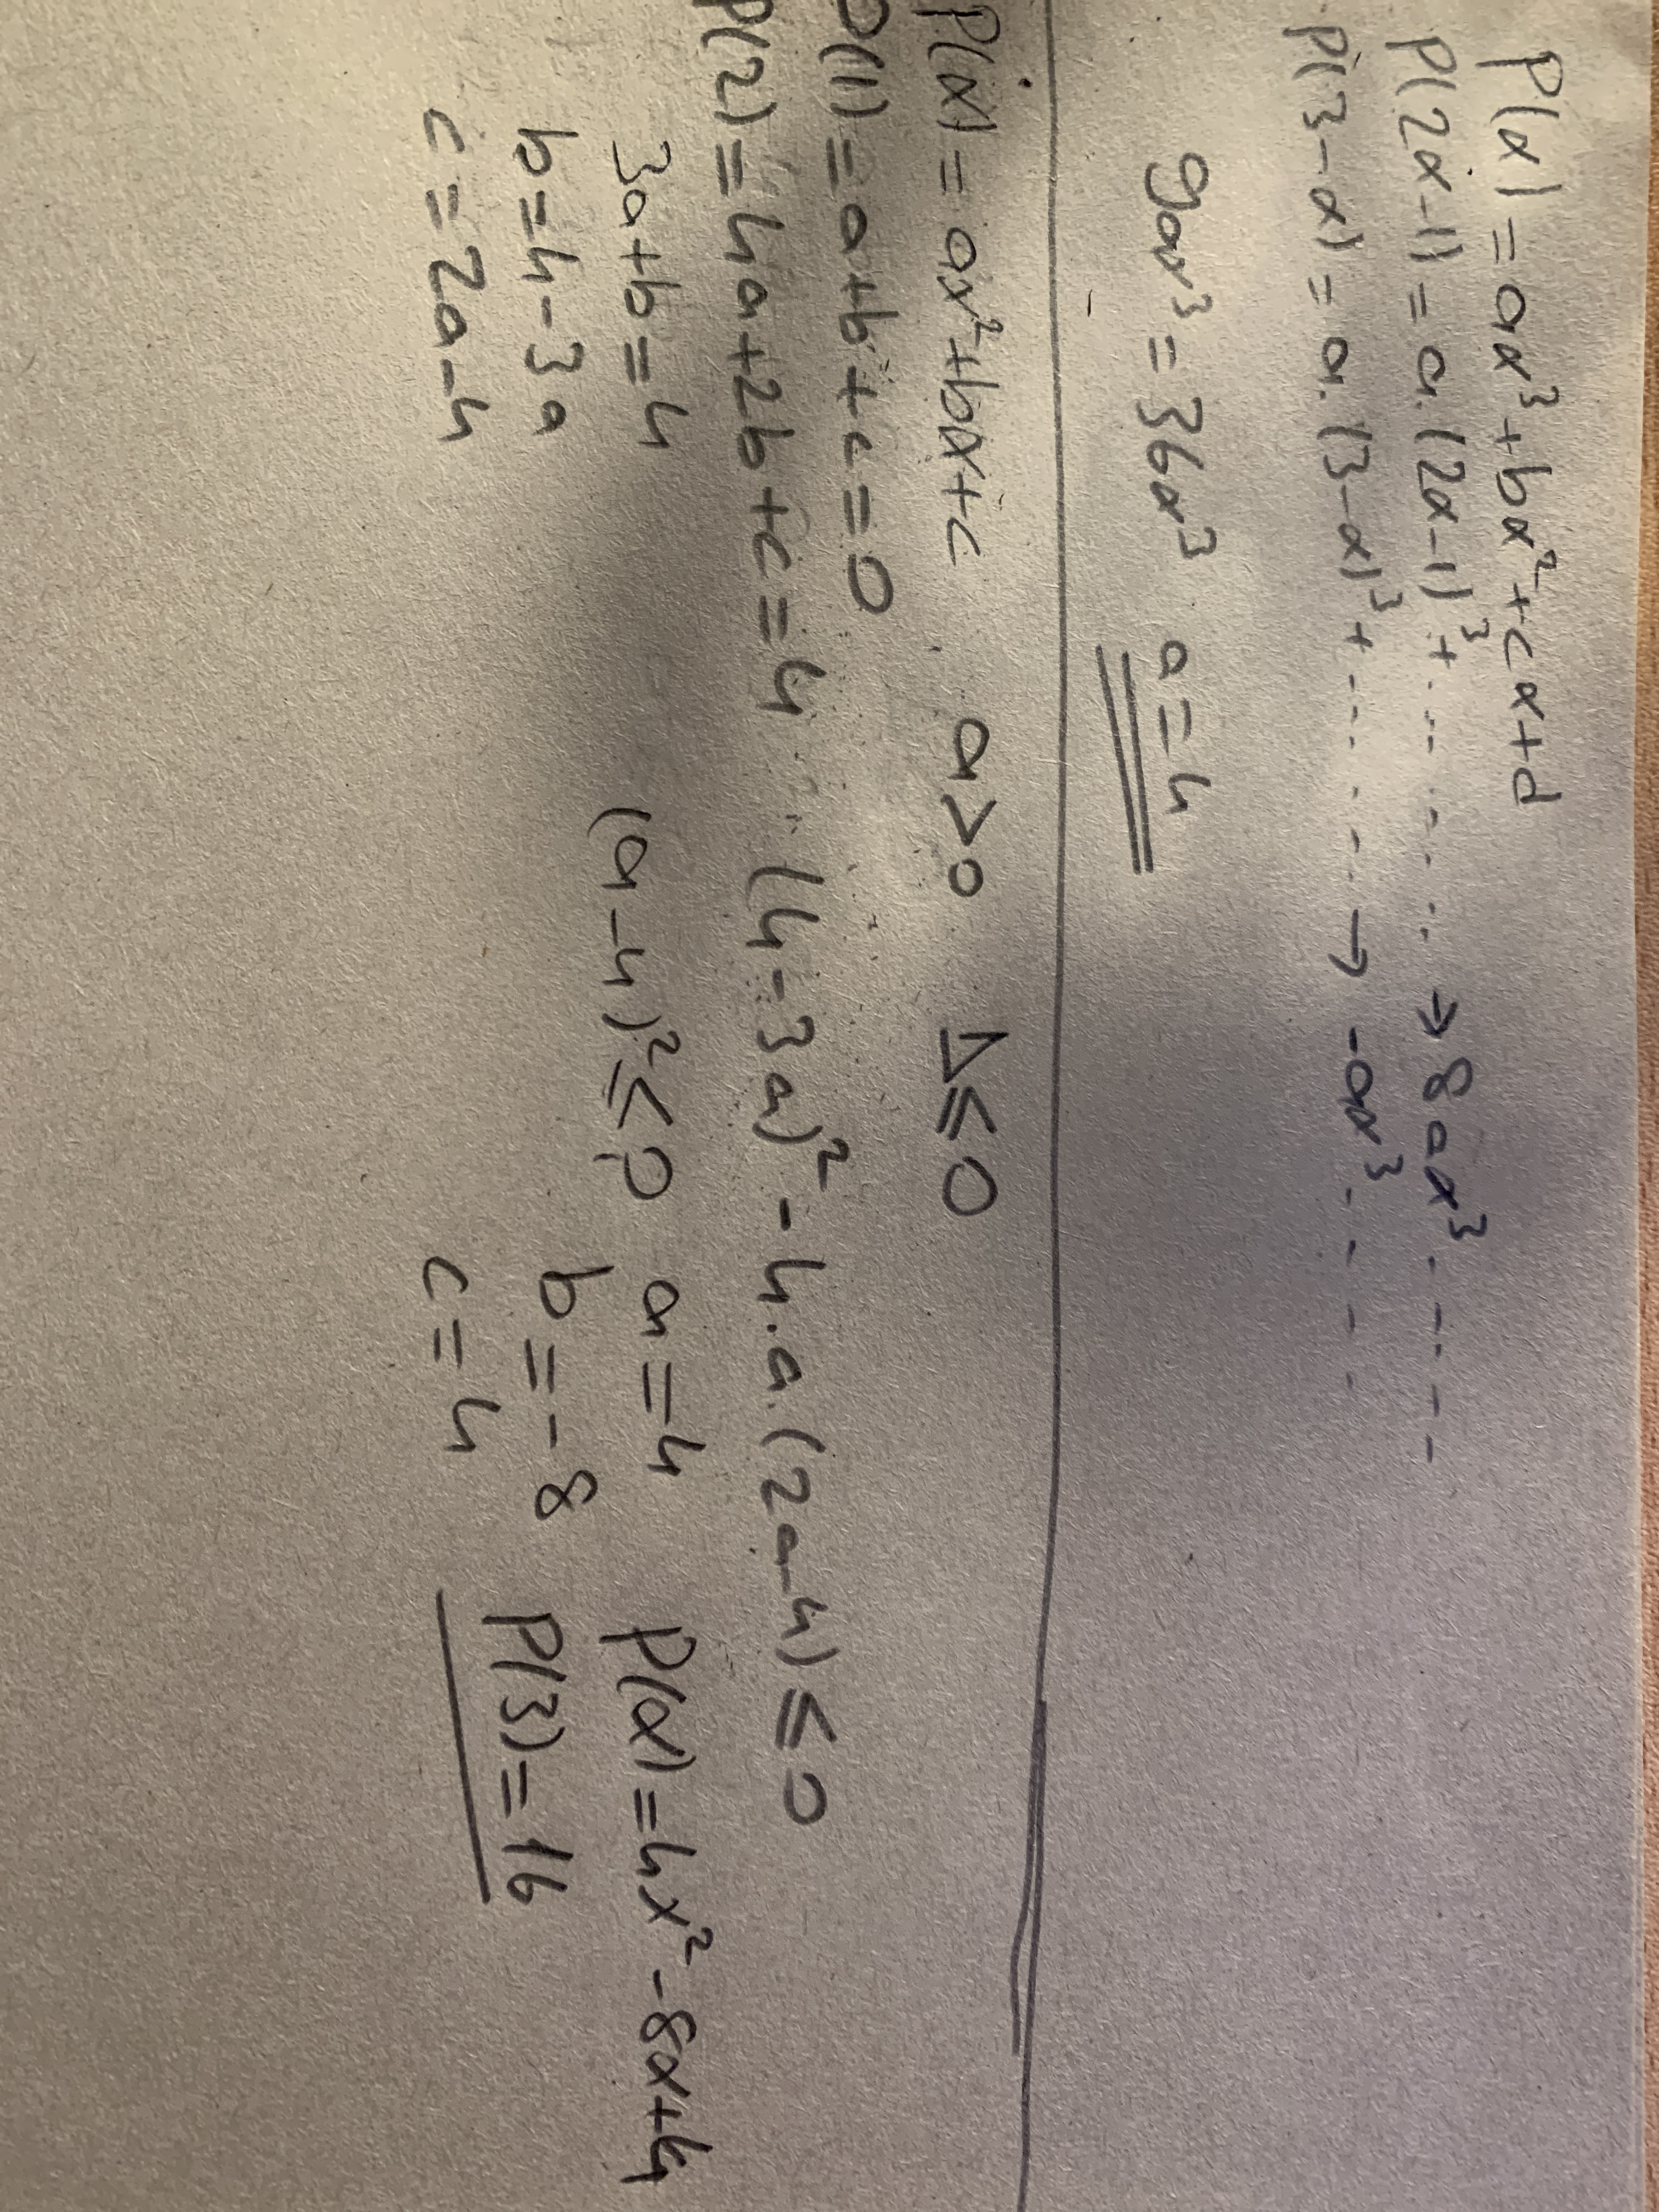 P(x) = ax³+bx²+cx+d
P(2x-1) = a.(2x-1)³+ ........ → 8ax³ ......
P(3-x) = a.(3-x)³+ ....... → -ax³ ......
9ax³ = 36x³ a=4
P(x) = ax²+bx+c a>0 Δ≤0
P(1) = a+b+c=0
P(2) = 4a+2b+c=4 (4-3a)²-4.a.(2a-4)≤0
3a+b=4 (a-4)²≤0 a=4 P(x)=4x²-8x+4
b=4-3a b=-8 P(3)=16
c=2a-4 c=4